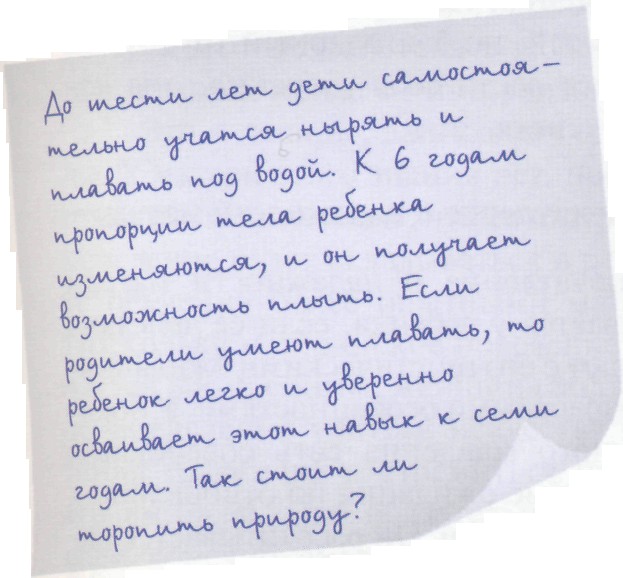 До шести лет дети самостоя–
тельно учатся нырять и
плавать под водой. К 6 годам
пропорции тела ребенка
изменяются, и он получает
возможность плыть. Если
родители умеют плавать, то
ребенок легко и уверенно
осваивает этот навык к семи
годам. Так стоит ли
торопить природу?